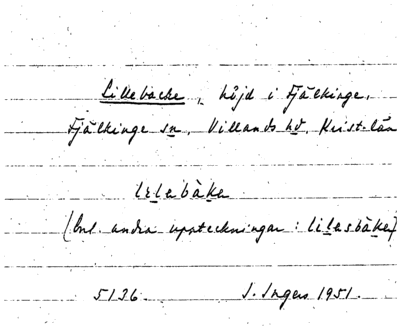 Lillebacke, höjd i Fjälkinge,
Fjälkinge sn, Villands hd, Krist. län
lilebàka
(Enl. andra uppteckningar: lilesbàka)
5136. I. Ingers 1951.